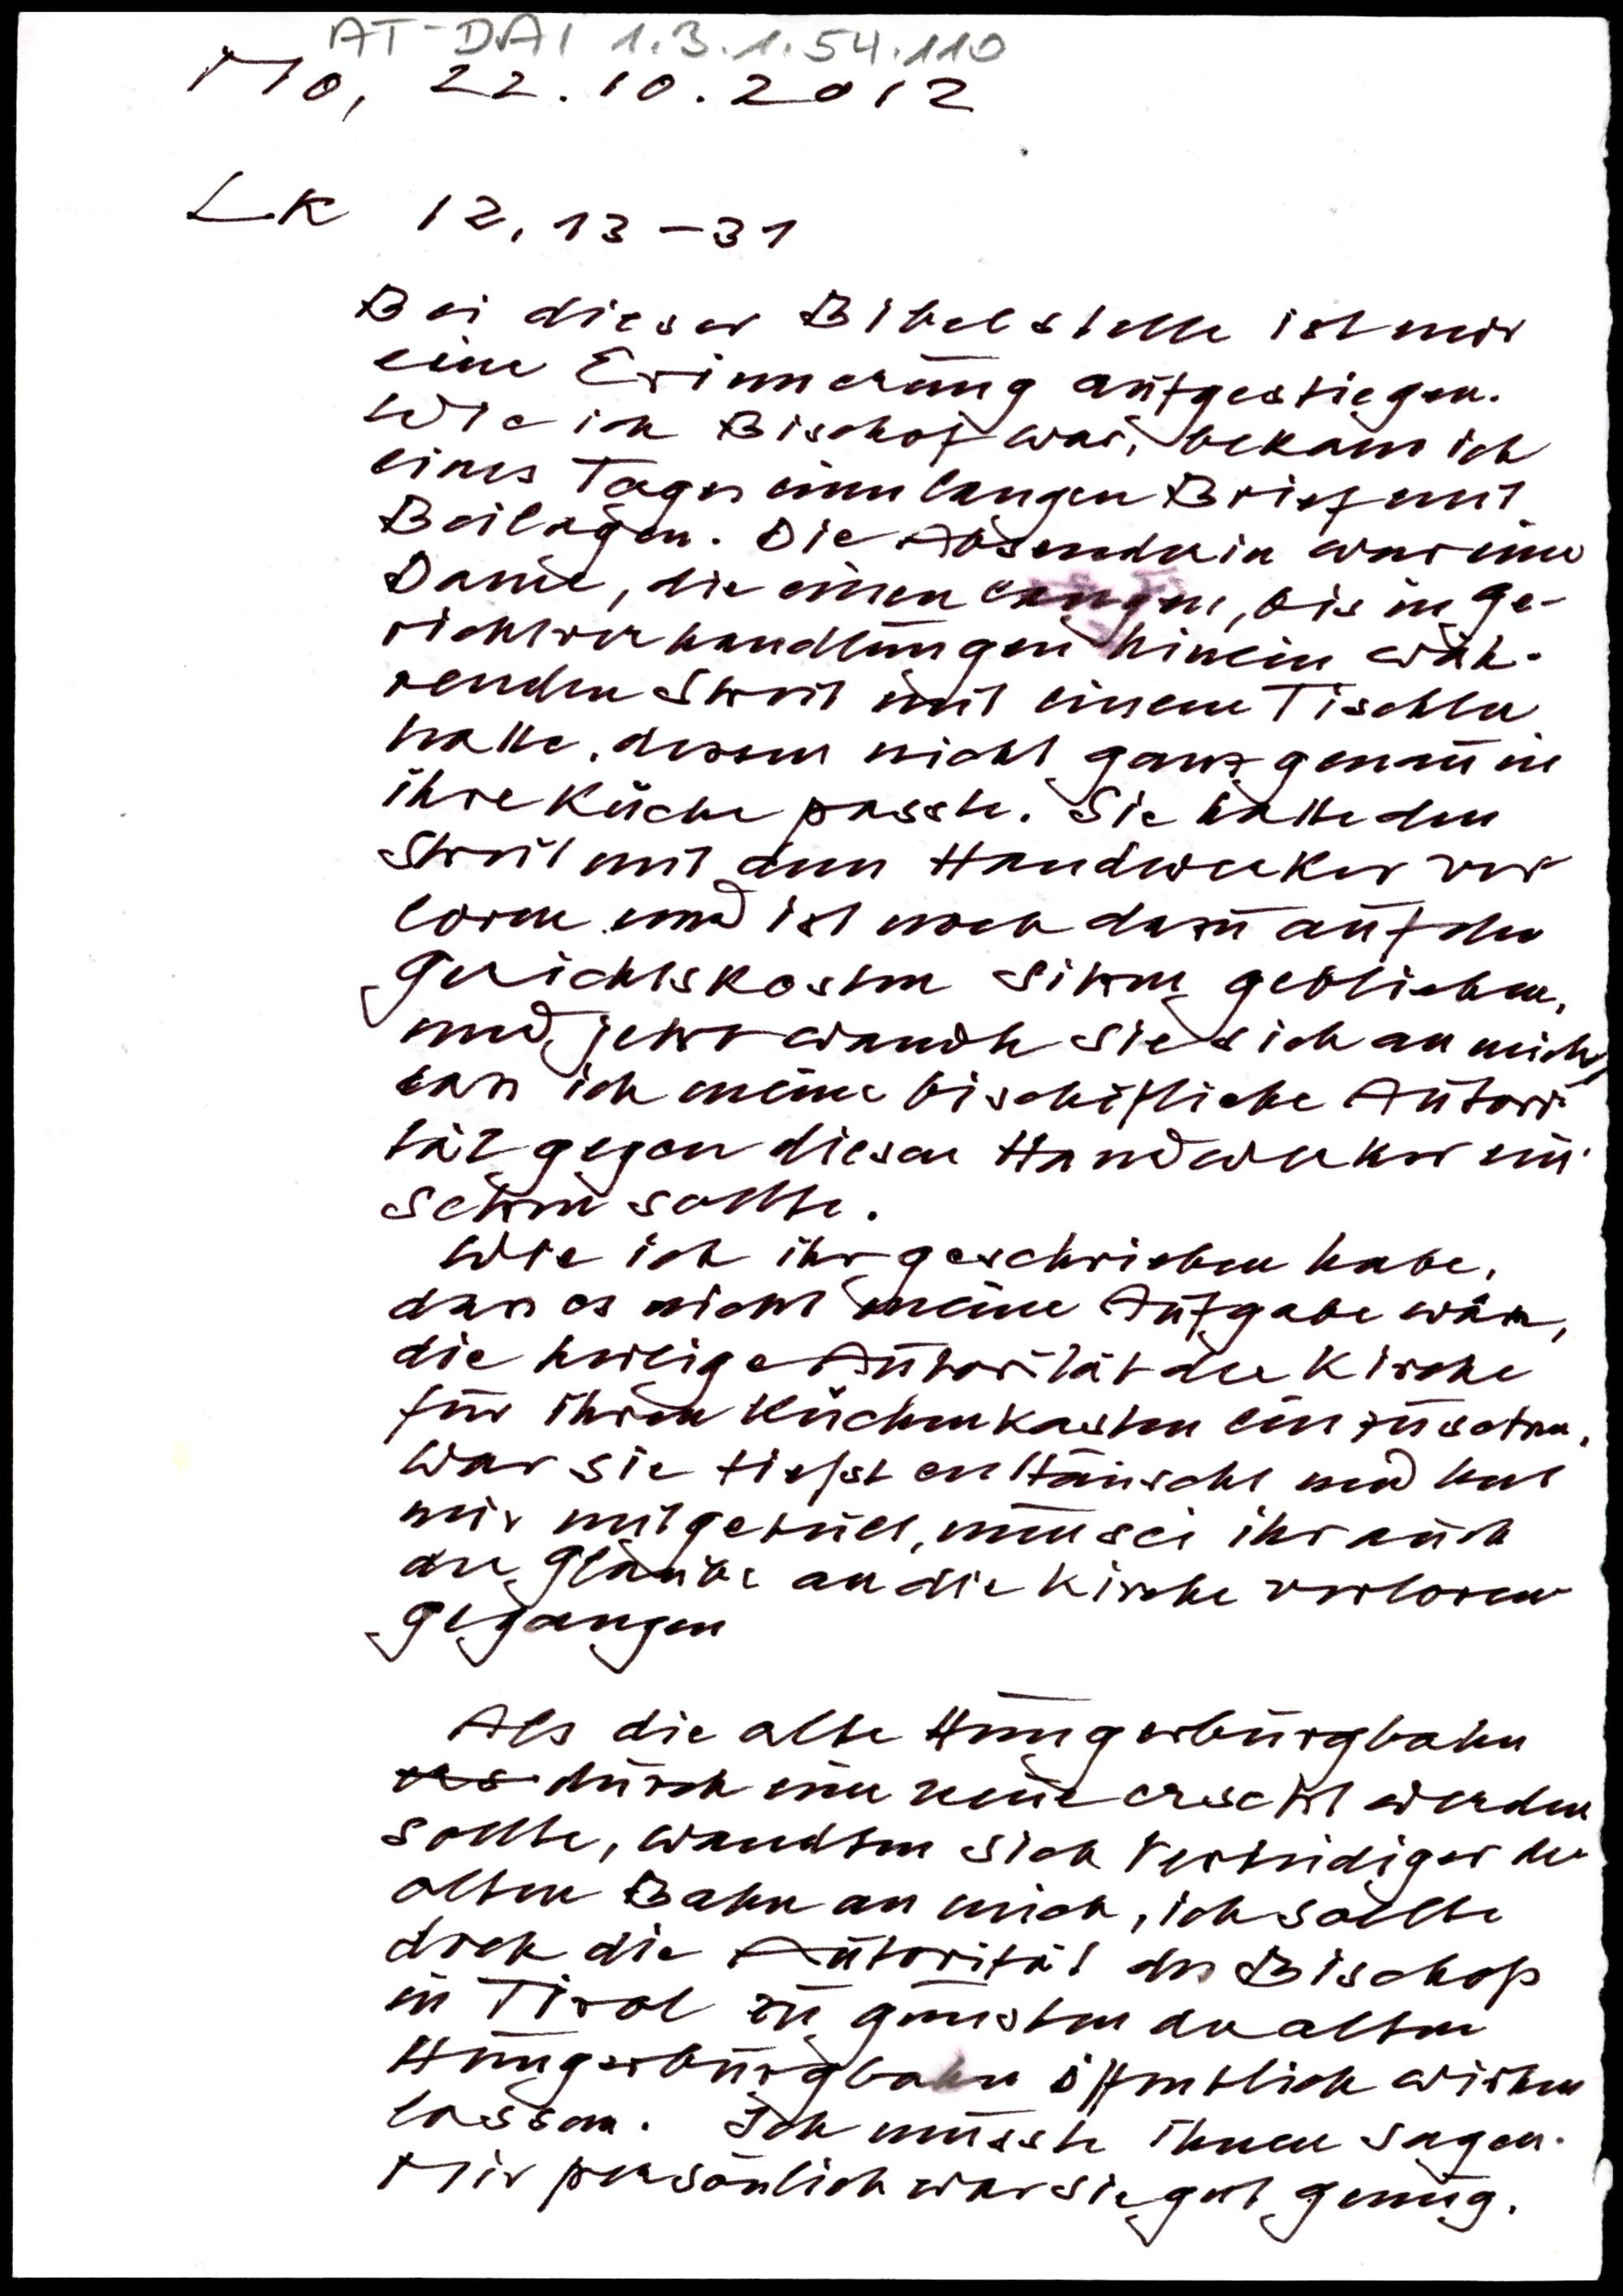 AT-DAI 1.3.1.54.110
Mo, 22.10.2012
Lk 12,13-31
Bei dieser Bibelstelle ist mir
eine Erinnerung aufgestiegen.
Wie ich Bischof war, bekam ich
eines Tages einen langen Brief mit
Beilagen. Die Absenderin war eine
Dame, die einen langen, bis in Ge-
richtsverhandlungen hinein wäh-
renden Streit mit einem Tischler
hatte, dessen nicht ganz genau in
ihre Küche passte. Sie hatte den
Streit mit dem Handwerker ver
loren und ist noch dazu auf den
Gerichtskosten sitzen geblieben,
und jetzt wandte sie sich an mich,
dass ich meine bischöfliche Autori
tät gegen diesen Handwerker ein
setzen sollte.
Wie ich ihr geschrieben habe,
dass es nicht meine Aufgabe wäre,
die heilige Autorität der Kirche
für ihren Küchenkasten einzusetzen,
war sie tiefst enttäuscht und hat
mir mitgeteilt, nun sei ihr auch
der Glaube an die Kirche verloren
gegangen
Als die alte Hungerburgbahn
durch eine neue ersetzt werden
sollte, wandten sich Verteidiger der
alten Bahn an mich, ich sollte
doch die Autorität des Bischofs
in Tirol zu gunsten der alten
Hungerburgbahn öffentlich wirken
lassen. Ich musste ihnen sagen.
Mir persönlich war sie gut genug.